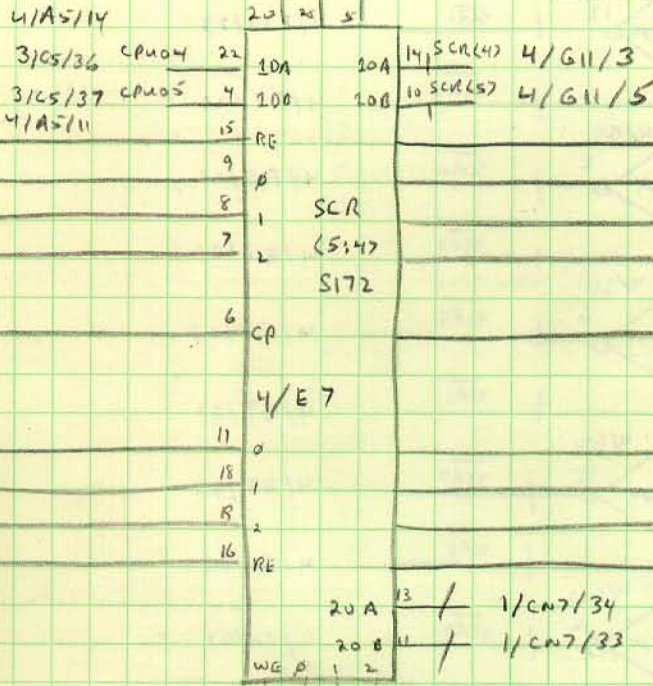 4/A5/14
20 20 5
3/C5/36 CPU04 22 1DA 1OA 14 SCR<4> 4/G11/3
3/C5/37 CPU05 4 1DB 1OB 10 SCR<5> 4/G11/5
4/A5/11
15 RE
9 0
8 1 SCR
7 2 <5:4>
S172
6 CP
4/E7
11 0
18 1
19 2
16 RE
2OA 13 1/CN7/34
2OB 11 1/CN7/33
WE 0 1 2